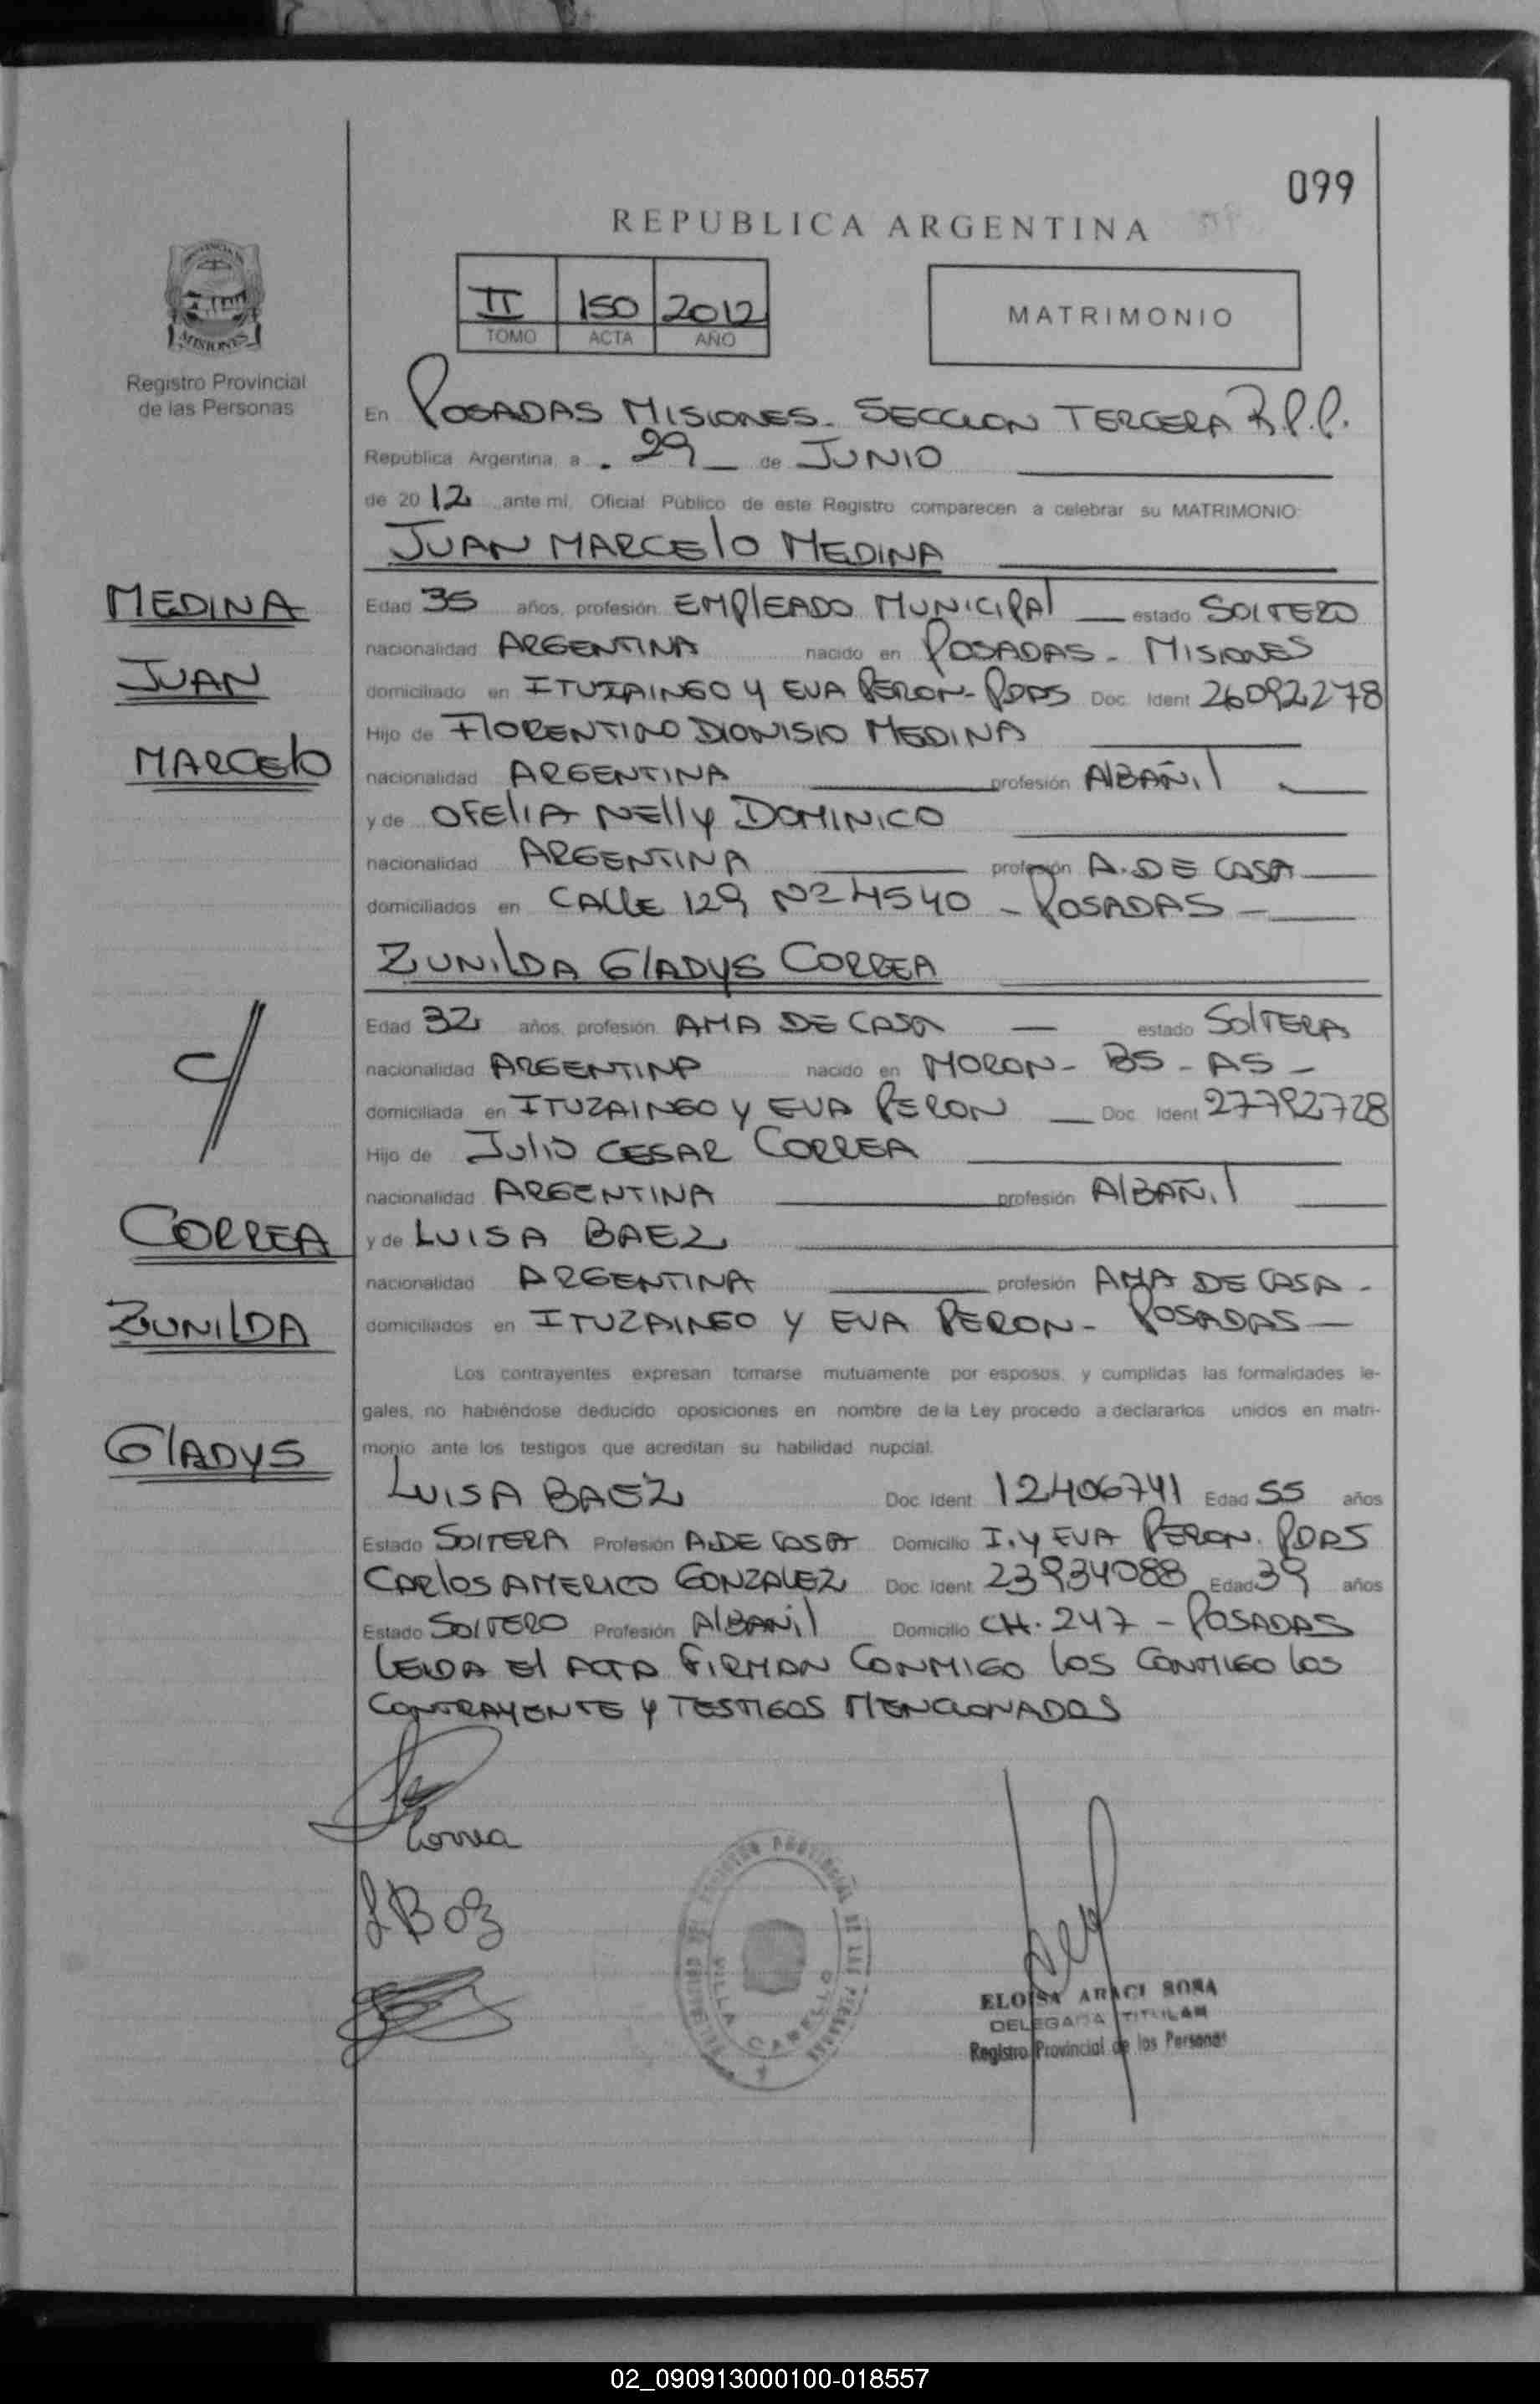 099
REPUBLICA ARGENTINA
II 150 2012
TOMO ACTA AÑO
MATRIMONIO
MISIONES
Registro Provincial
de las Personas
En POSADAS MISIONES. SECCION TERCERA R.P.P.
República Argentina, a 29 de JUNIO
de 2012 ante mi, Oficial Público de este Registro comparecen a celebrar su MATRIMONIO
JUAN MARCElO MEDINA
MEDINA
JUAN
MARCElO
Edad 35 años, profesión EMPlEADO MUNICIPAl estado SOlTERO
nacionalidad ARGENTINA nacido en POSADAS - MISIONES
domiciliado en ITUZAINGO Y EVA PERON - PDAS Doc. Ident 26092278
Hijo de FlORENTINO DIONISIO MEDINA
nacionalidad ARGENTINA profesión AlBAÑil
y de OFElIA NEllY DOMINICO
nacionalidad ARGENTINA profesión A. DE CASA
domiciliados en CAllE 129 Nº 4540 - POSADAS -
ZUNIlDA GlADYS CORREA
Edad 32 años, profesión AMA DE CASA estado SOlTERA
nacionalidad ARGENTINA nacido en MORON - BS - AS -
domiciliada en ITUZAINGO Y EVA PERON Doc. Ident 27792728
Hijo de JUlIO CESAR CORREA
nacionalidad ARGENTINA profesión AlBAÑil
y de LUISA BAEZ
nacionalidad ARGENTINA profesión AMA DE CASA -
domiciliados en ITUZAINGO Y EVA PERON - POSADAS
CORREA
ZUNIlDA
GlADYS
Los contrayentes expresan tomarse mutuamente por esposos, y cumplidas las formalidades le-
gales, no habiéndose deducido oposiciones en nombre de la Ley procedo a declararlos unidos en matri-
monio ante los testigos que acreditan su habilidad nupcial.
LUISA BAEZ Doc. Ident 12406741 Edad 55 años
Estado SOlTERA Profesión A.DE CASA Domicilio I. Y EVA PERON. PDAS
CARlOS AMERICO GONZALEZ Doc. Ident 23934088 Edad 39 años
Estado SOlTERO Profesión AlBANil Domicilio CH. 247 - POSADAS
LEIDA El ACTA FIRMAN CONMIGO lOS CONMIGO lOS
CONTRAYENTE Y TESTIGOS MENCIONADOS
Correa
VILLA CABELLO
ELOISA ARACI
DELEGADA TITULAR
Registro Provincial de las Personas
02_090913000100-018557